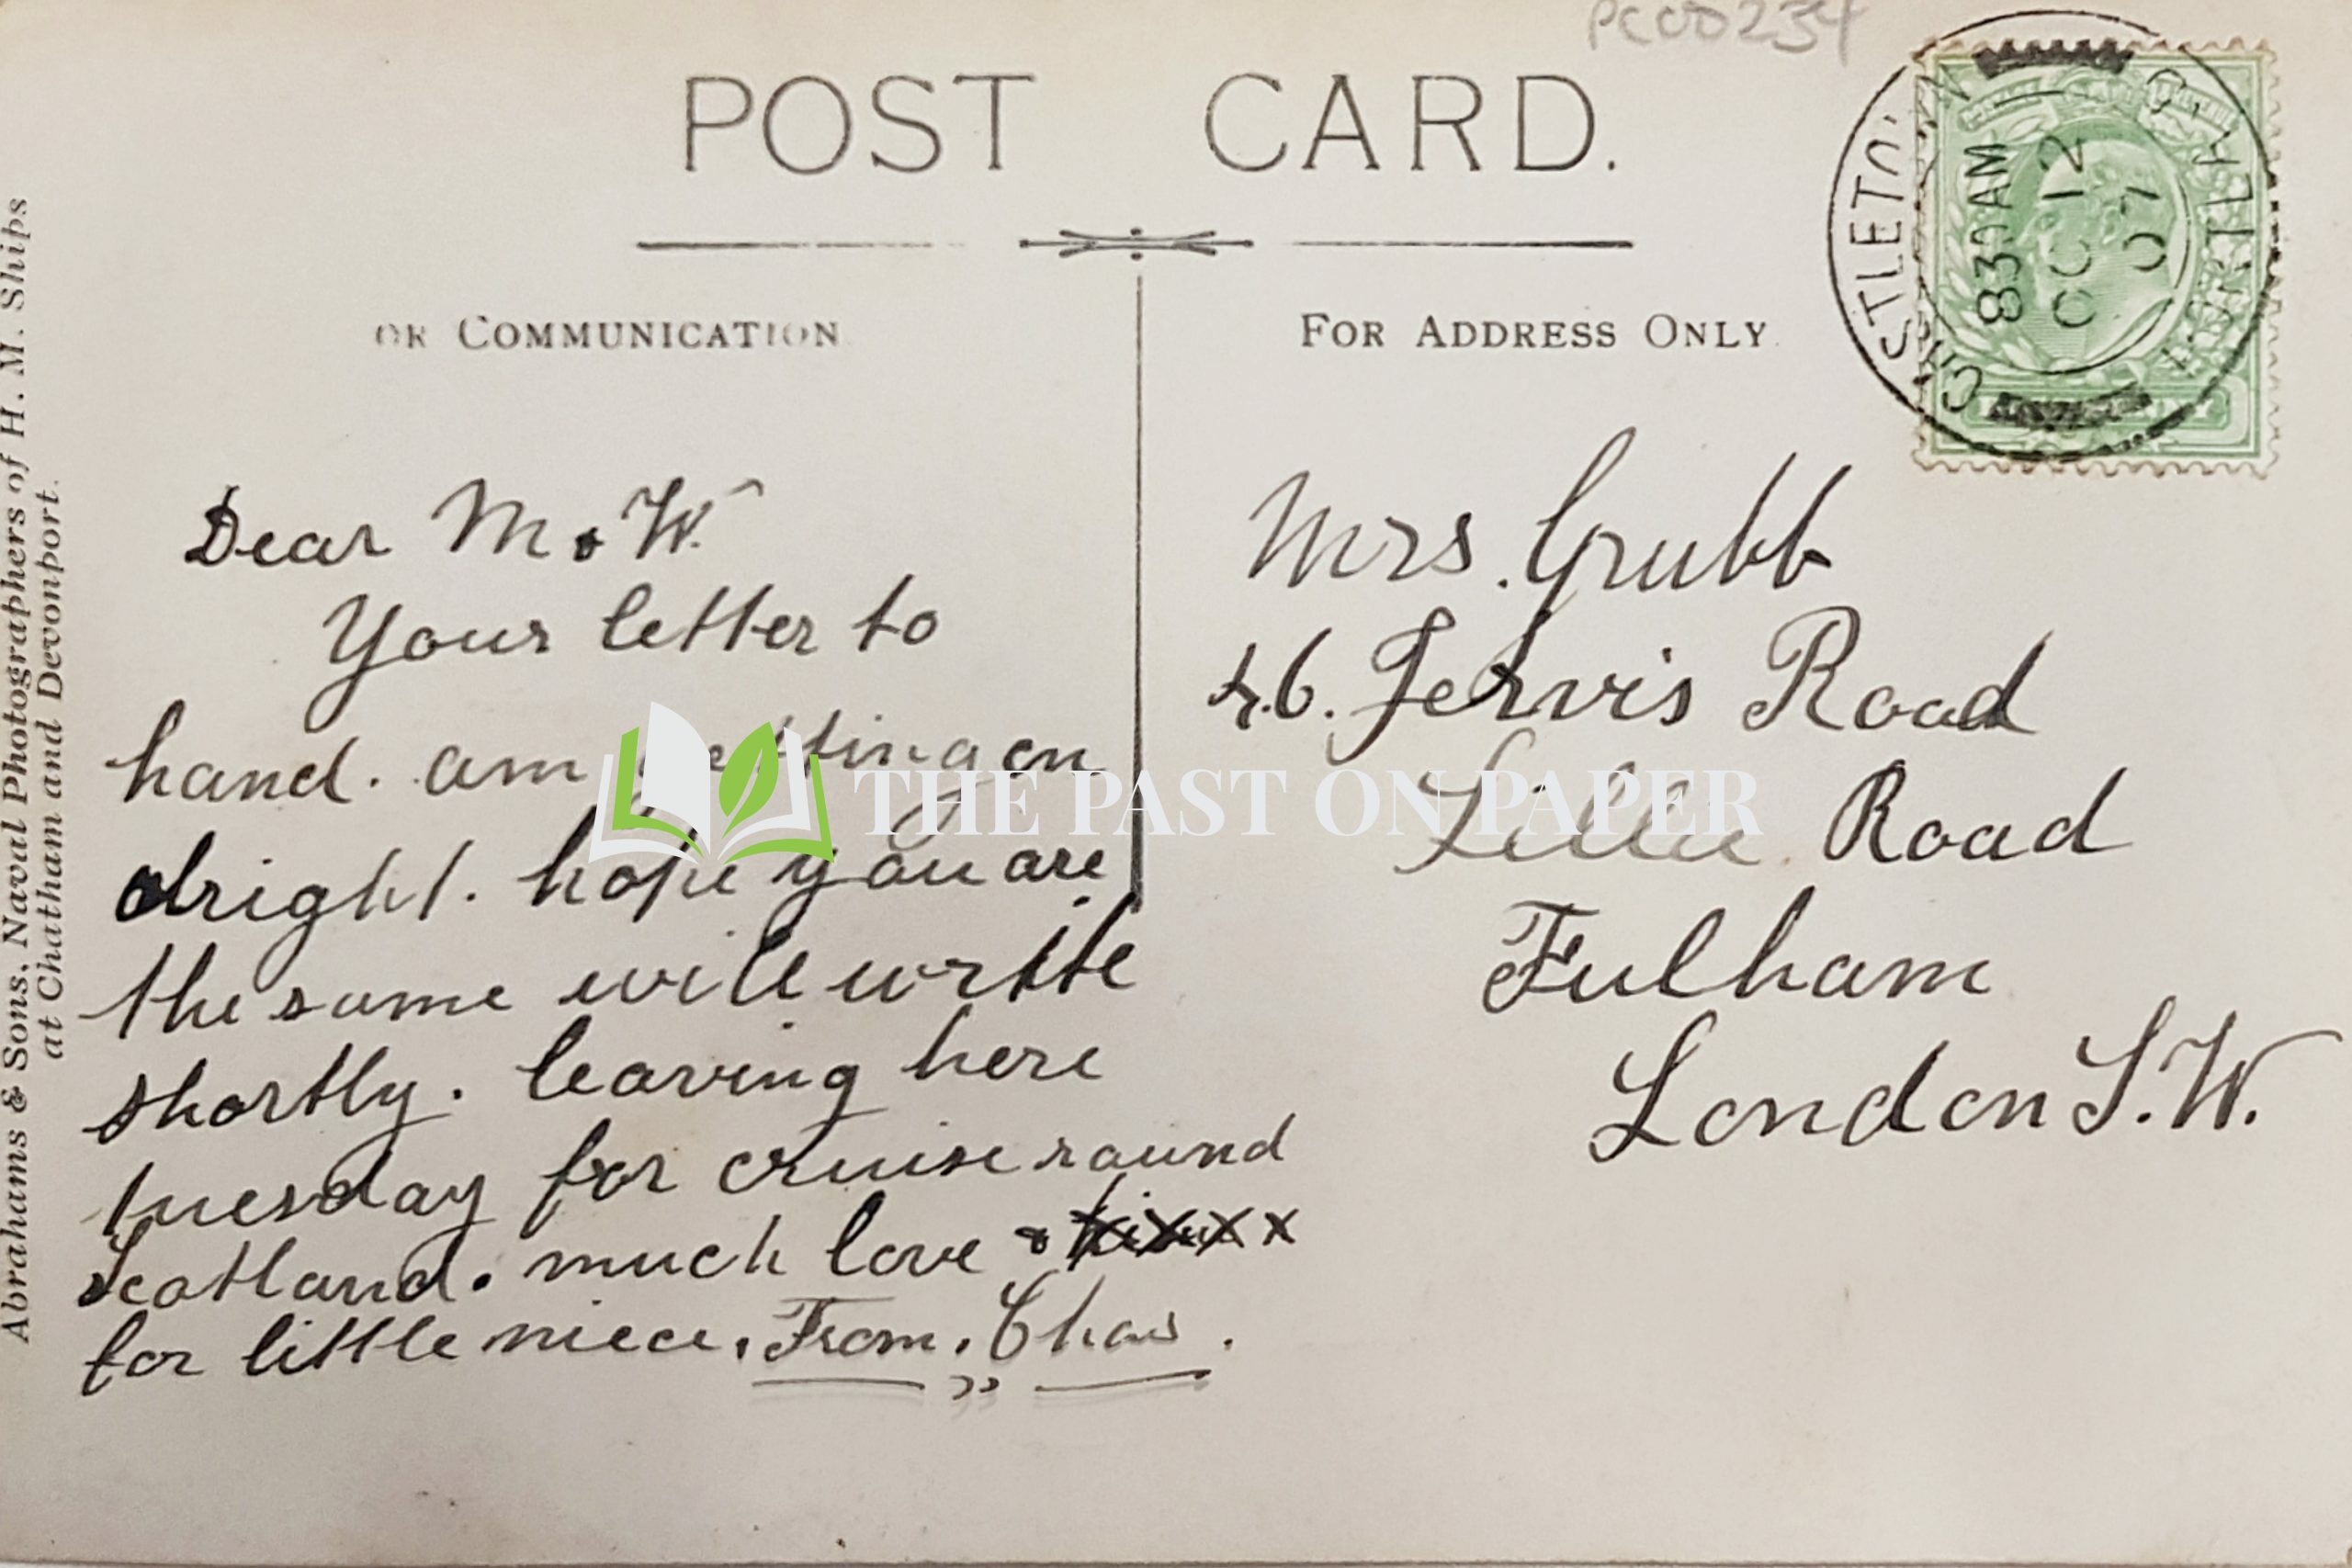 PC00234
POST CARD.
OR COMMUNICATION
FOR ADDRESS ONLY
CASTLETOWN
PORTLAND
830AM
OC 12
07
Abrahams & Sons, Naval Photographers of H. M. Ships
at Chatham and Devonport.
Dear M & W.
Your letter to
hand. am getting on
alright. hope you are
the same will write
shortly. leaving here
tuesday for cruise round
Scotland. much love & xxxxx
for little niece. From. Chas.
Mrs. Grubb
46. Jervis Road
Lillie Road
Fulham
London S.W.
THE PAST ON PAPER